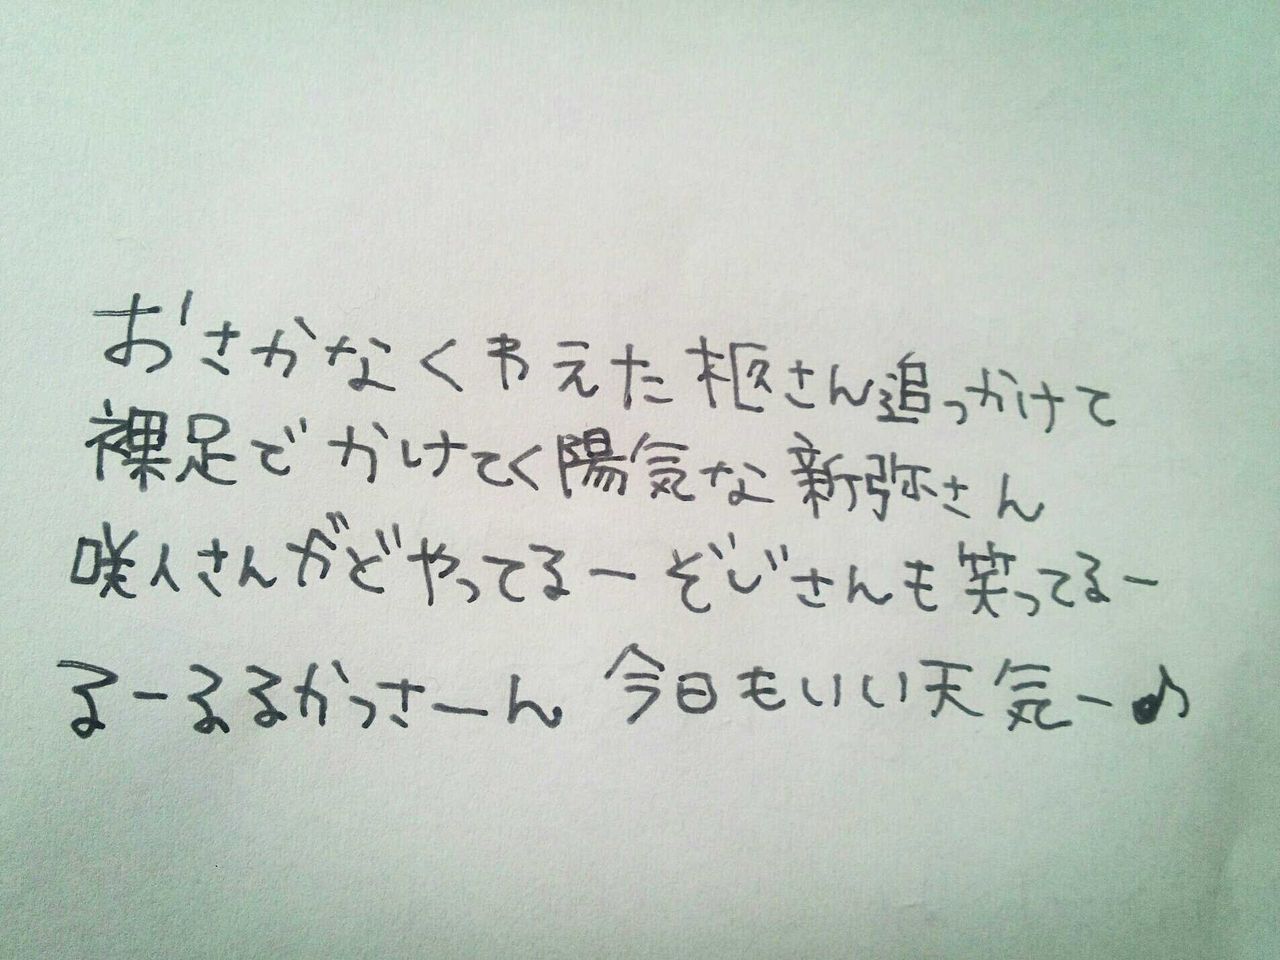 おさかなくわえた柩さん追っかけて
裸足でかけてく陽気な新弥さん
咲人さんがどやってるーぞじさんも笑ってるー
るーるるかっさーん 今日もいい天気ー♪